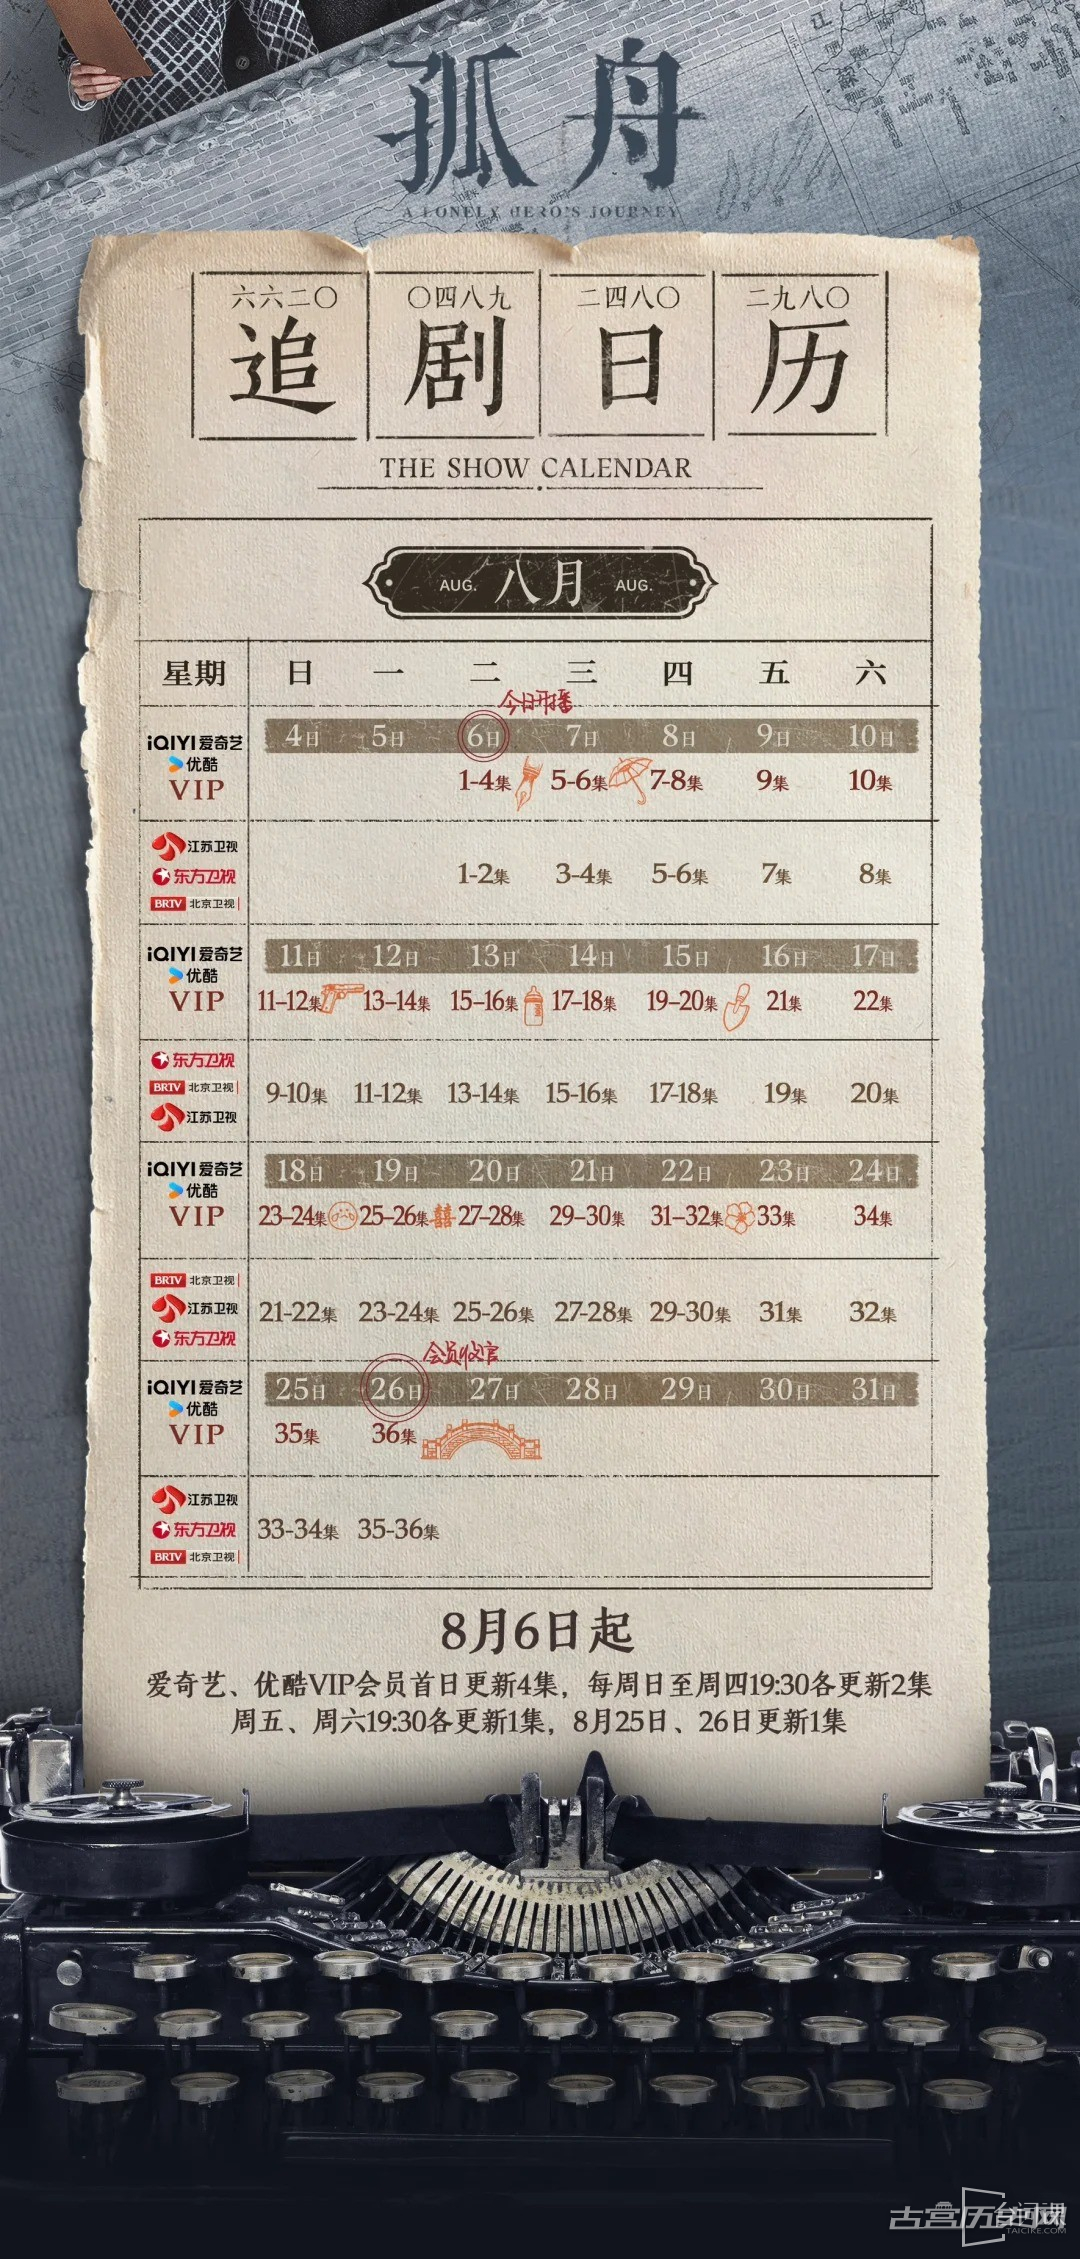 孤舟
A LONELY HERO'S JOURNEY
六六二〇 〇四八九 二四八〇 二九八〇
追剧日历
THE SHOW CALENDAR
AUG. 八月 AUG.
星期 日 一 二 三 四 五 六
今日开播
4日 5日 6日 7日 8日 9日 10日
iQIYI 爱奇艺
优酷
VIP
1-4集 5-6集 7-8集 9集 10集
江苏卫视
东方卫视
BRTV 北京卫视
1-2集 3-4集 5-6集 7集 8集
11日 12日 13日 14日 15日 16日 17日
iQIYI 爱奇艺
优酷
VIP
11-12集 13-14集 15-16集 17-18集 19-20集 21集 22集
东方卫视
BRTV 北京卫视
江苏卫视
9-10集 11-12集 13-14集 15-16集 17-18集 19集 20集
18日 19日 20日 21日 22日 23日 24日
iQIYI 爱奇艺
优酷
VIP
23-24集 25-26集 囍 27-28集 29-30集 31-32集 33集 34集
BRTV 北京卫视
江苏卫视
东方卫视
21-22集 23-24集 25-26集 27-28集 29-30集 31集 32集
会员收官
25日 26日 27日 28日 29日 30日 31日
iQIYI 爱奇艺
优酷
VIP
35集 36集
江苏卫视
东方卫视
BRTV 北京卫视
33-34集 35-36集
8月6日起
爱奇艺、优酷VIP会员首日更新4集，每周日至周四19:30各更新2集
周五、周六19:30各更新1集，8月25日、26日更新1集
TAICIKE.COM